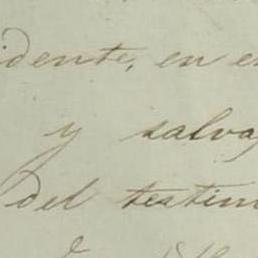 idente, en e
y salva
del testim